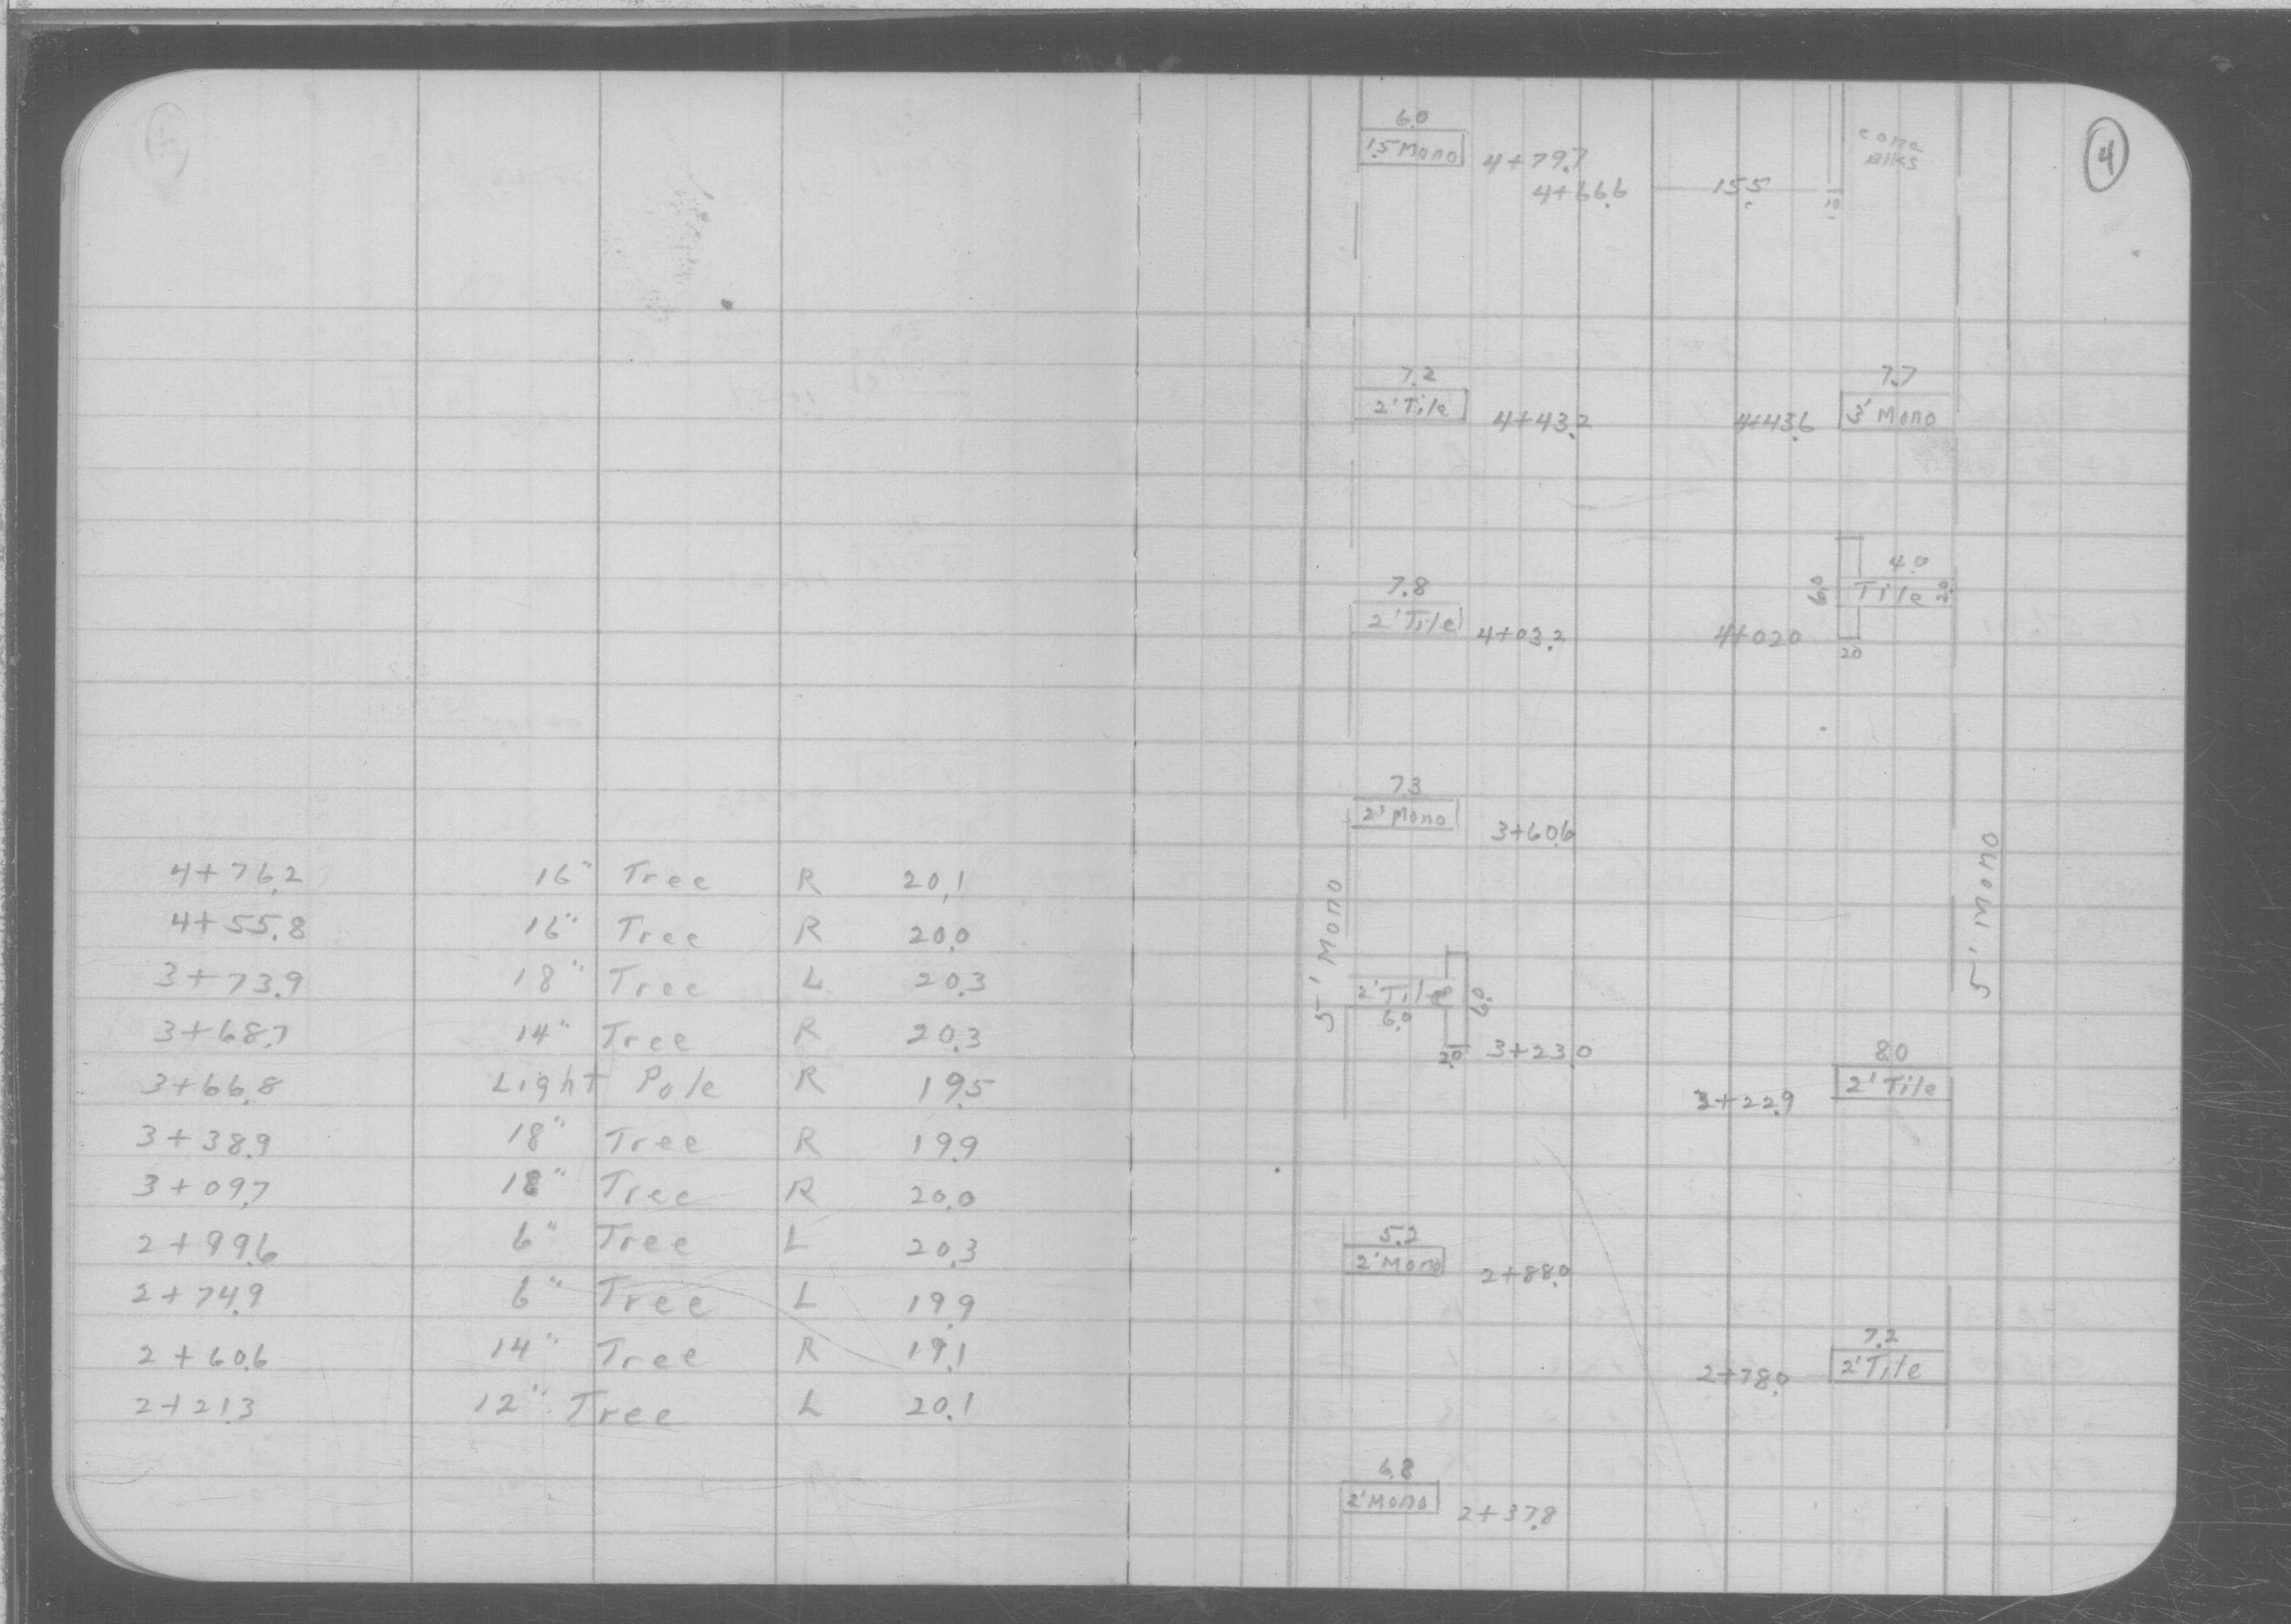 4+76.2 16" Tree R 20.1
4+55.8 16" Tree R 20.0
3+73.9 18" Tree L 20.3
3+68.7 14" Tree R 20.3
3+66.8 Light Pole R 19.5
3+38.9 18" Tree R 19.9
3+09.7 18" Tree R 20.0
2+99.6 6" Tree L 20.3
2+74.9 6" Tree L 19.9
2+60.6 14" Tree R 19.1
2+21.3 12" Tree L 20.1
4
6.0
1.5 Mono 4+79.7
conc
Blks
4+66.6 15.5 1.0
7.2
2' Tile 4+43.2
7.7
4+43.6 3' Mono
7.8
2' Tile 4+03.2
4.0
6.0 Tile 2.0
4+02.0
2.0
7.3
2' Mono 3+60.6
5' Mono
5' Mono
2' Tile 6.0
6.0
2.0 3+23.0
8.0
3+22.9 2' Tile
5.2
2' Mono 2+88.0
7.2
2+78.0 2' Tile
6.8
2' Mono 2+37.8